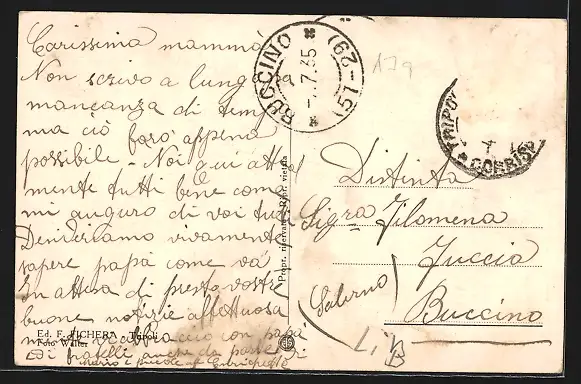 Carissima mamma
Non scrivo a lungo
mancanza di tempo
ma ciò farò appena
possibile - Noi qui attual
mente tutti bene come
mi auguro di voi tutti
Desideriamo vivamente
sapere papà come va
In attesa di presto vostre
buone notizie affettuosa
mente vi abbraccio con papà
fratelli anche da parte di
mario e
Ed. F. FICHERA - Tripoli
Foto Walter
Propr. riservata - Ripr. vietata
BUCCINO
7.35
(51-29)
179
TRIPO
CORRISP
Distinta
Sig.ra Filomena
Fuccia
(Salerno)
Buccino